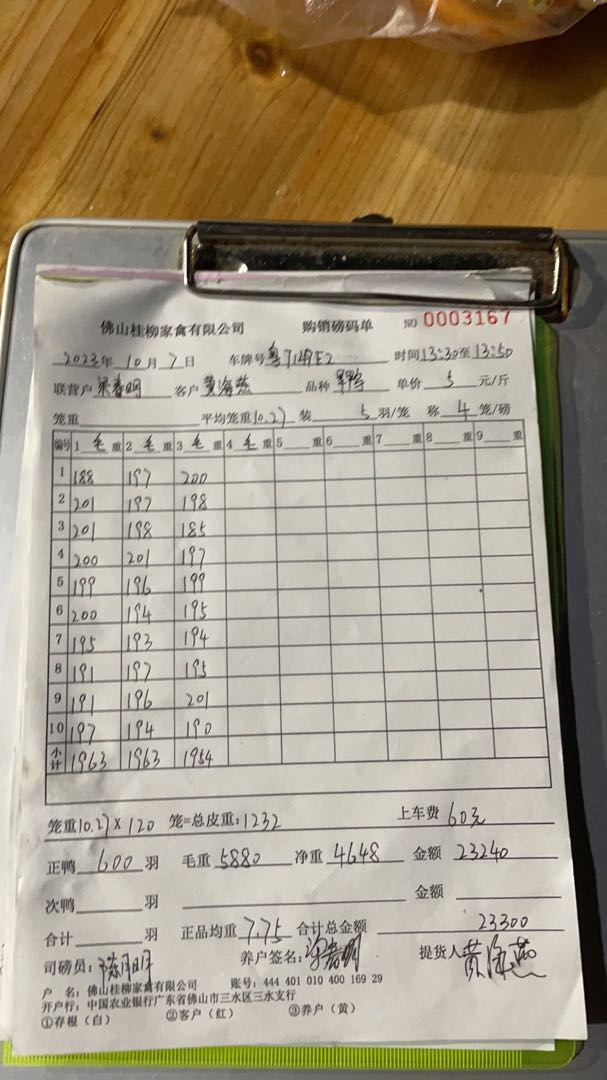 佛山桂柳家禽有限公司 购销磅码单 NO 0003167
2023年 10月 7日 车牌号 时间13:30至13:50
联营户 梁春明 客户 黄海燕 品种 单价 5 元/斤
笼重 平均笼重10.27 装 5 羽/笼 称 4 笼/磅
编号 1 毛 重 2 毛 重 3 毛 重 4 毛 重 5 重 6 重 7 重 8 重 9 重
1 188 197 200
2 201 197 198
3 201 198 185
4 200 201 197
5 199 196 199
6 200 194 195
7 195 193 194
8 191 197 195
9 191 196 201
10 197 194 190
小计 1963 1963 1954
笼重10.27×120 笼=总皮重:1232 上车费 60元
正鸭 600 羽 毛重 5880 净重 4648 金额 23240
次鸭 羽 金额
合计 羽 正品均重 7.75 合计总金额 23300
司磅员: 养户签名:梁春明 提货人 黄海燕
户 名:佛山桂柳家禽有限公司 账号:444 401 010 400 169 29
开户行:中国农业银行广东省佛山市三水区三水支行
①存根(白) ②客户(红) ③养户(黄)